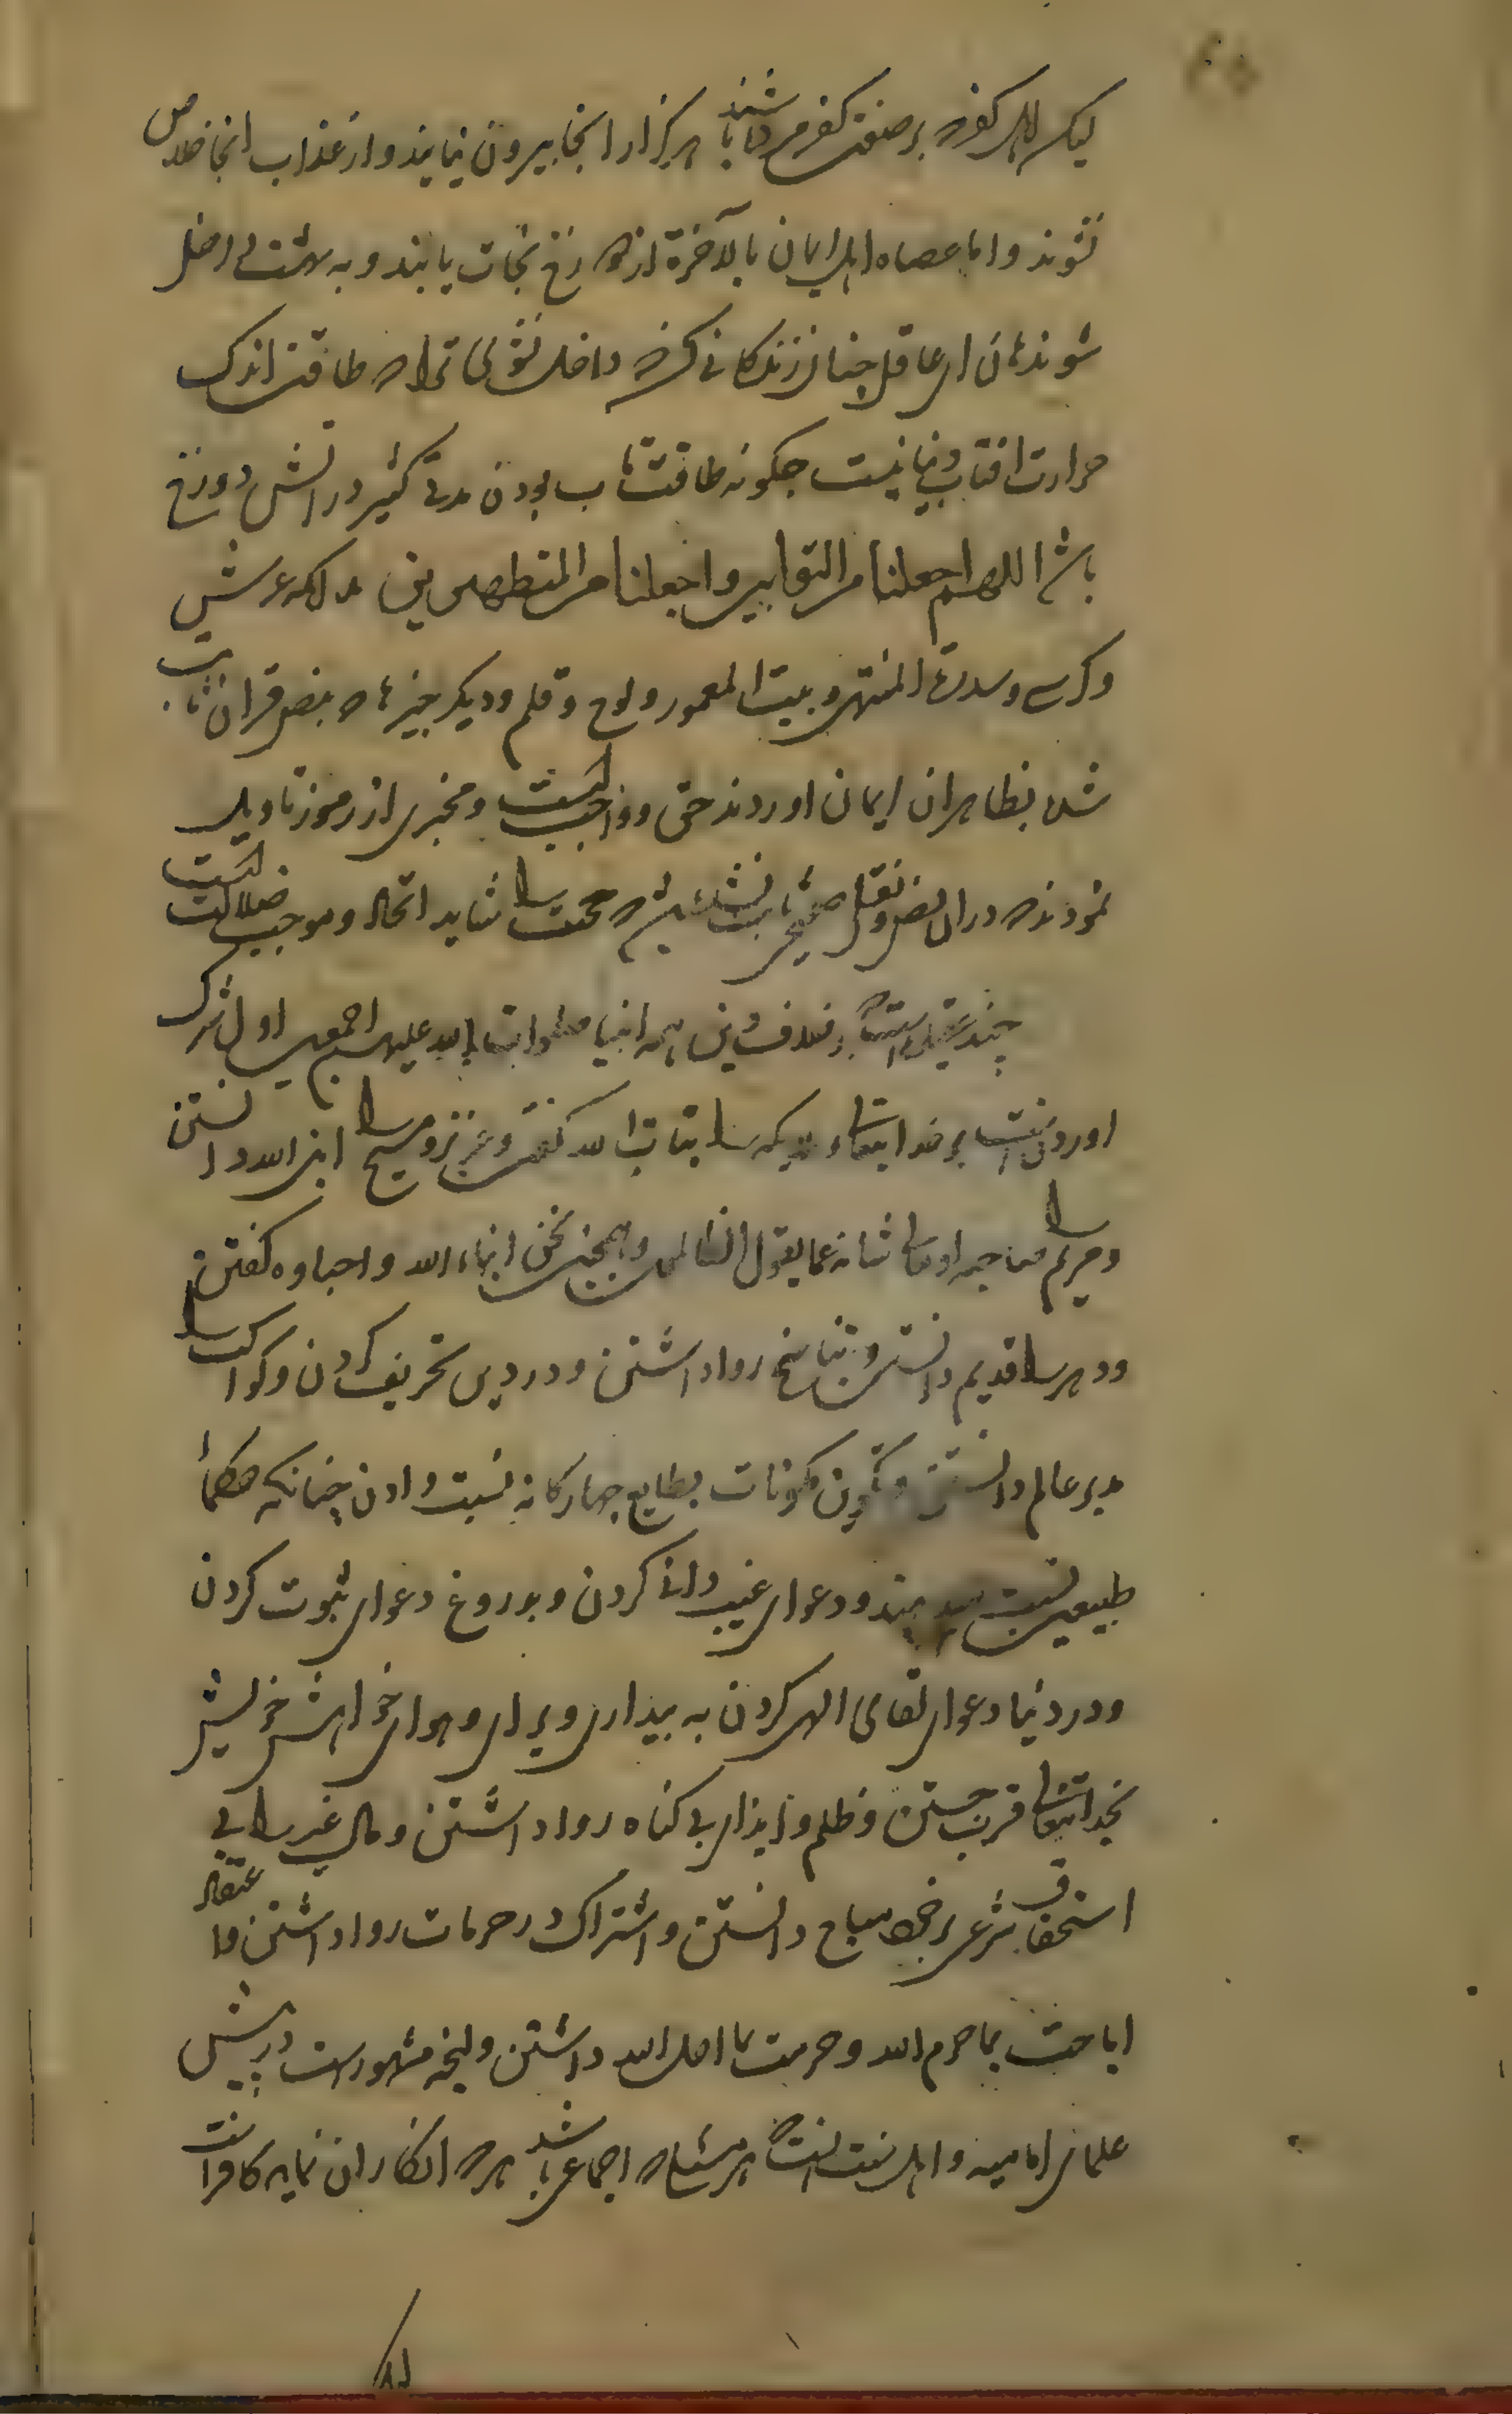 لیک اهل کفر که بر صفت کفر مرده باشند هرگز از انجا بیرون نیایند و از عذاب انجا خلاص
نشوند و اما عصاه اهل ایمان بالآخرة از دوزخ نجات یابند و به بهشت داخل
شوند هان ای عاقل چنان زندگانی کن که داخل نشوی ترا که طاقت اندک
حرارت افتاب دنیا نیست چکونه طاقت تاب بودن مدتی کثیر در اتش دوزخ
باشد اللهم اجعلنا من التوابین واجعلنا من المتطهرین عرش
و کرسی و سدرة المنتهی و بیت المعمور و لوح و قلم و دیکر چیزها که بنص قران ثابت
شده بظاهر ان ایمان اوردند حق و واجب است و مخبری از رموز تاویل
نمودند که در ان نص و نقل صحیح ثابت نشده صحت را شاید اتحاد و موجب ضلالت است
چند عقیده است که خلاف دین همه انبیا صلوات الله علیهم اجمعین اول شرک
اوردن است بر خدا تعالی ملایکه را بنات الله گفتن و عزیر و مسیح را ابن الله دانستن
و مریم را صاحبه او تعالی شانه عما یقول الظالمین و همچنین نحن ابناء الله و احباوه گفتن
و دهر را قدیم دانستن و تناسخ روا داشتن و در دین تحریف کردن و کواکب را
مدبر عالم دانستن و تکوین مکونات بطایع چهارکانه نسبت دادن چنانکه حکمأ
طبیعین نسبت میدهند و دعوای غیب دانی کردن و بدروغ دعوای ثبوت کردن
و در دنیا دعوای لقای الهی کردن به بیداری و برای و هوای خواهش خویش
بخدا تعالی قرب جستن و ظلم و ایذای بی کناه روا داشتن و مال غیر را بی
استحقاق شرعی بر خود مباح دانستن و اشتراک در حرمات روا داشتن و اعتقاد
اباحت بما حرم الله و حرمت بما احل الله داشتن و انچه مشهور است در پیش
علمای امامیه و اهل سنت انست که هر مسئله که اجماعی باشد هر که انکار ان نماید کافر است